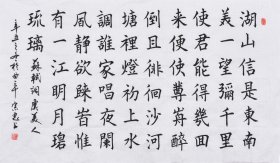 湖山信是東南
美一望彌千里
使君能得幾回
來便使尊前醉
倒且徘徊沙河
塘裡燈初上水
調誰家唱夜闌
風靜欲歸時惟
有一江明月碧
琉璃 蘇軾詞虞美人
辛丑之冬於